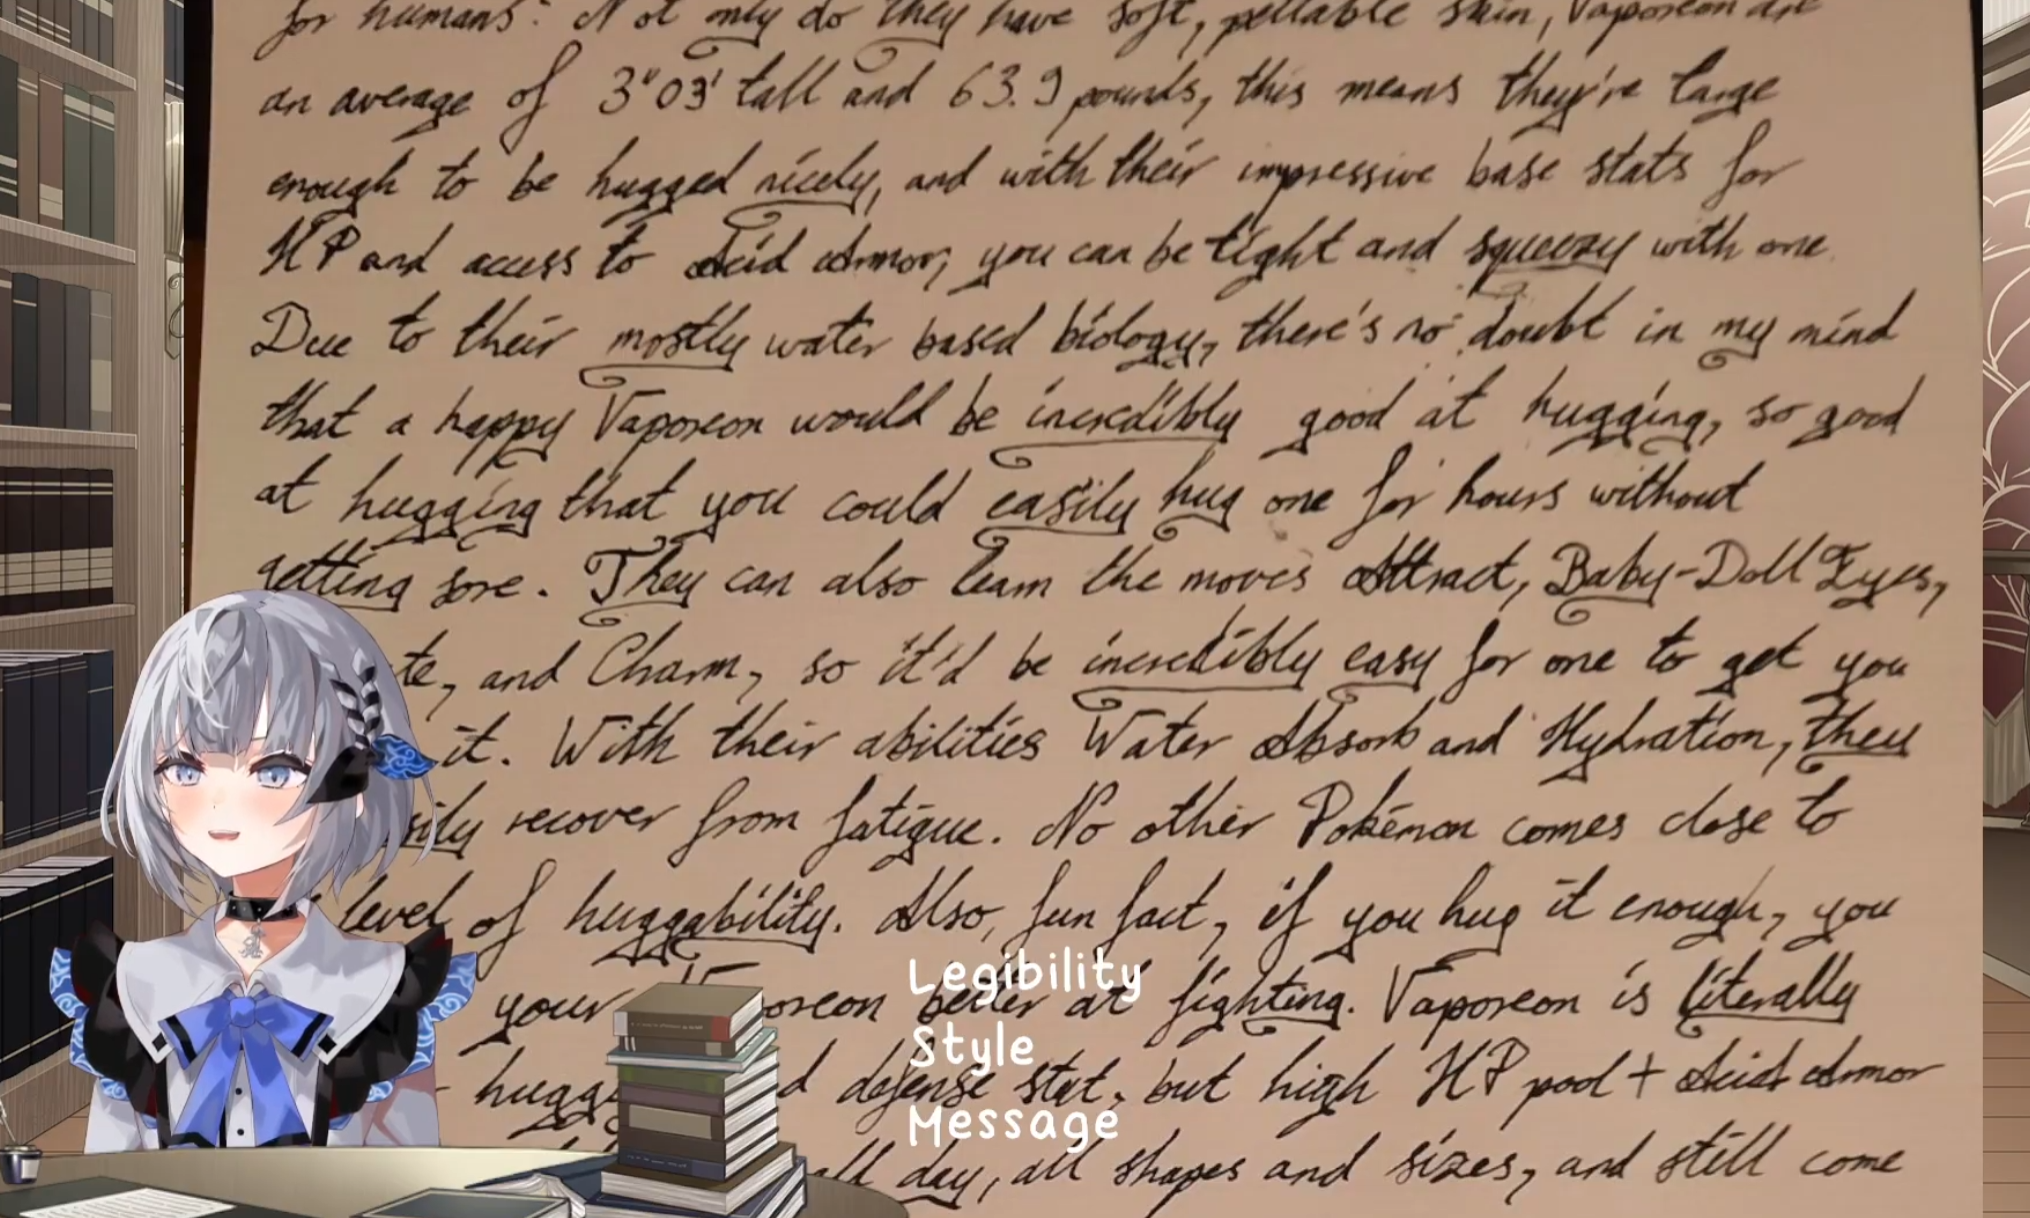 for humans? Not only do they have soft, pettable skin, Vaporeon are
an average of 3"03' tall and 63.9 pounds, this means they're large
enough to be hugged nicely, and with their impressive base stats for
HP and access to Acid Armor, you can be tight and squeezy with one.
Due to their mostly water based biology, there's no doubt in my mind
that a happy Vaporeon would be incredibly good at hugging, so good
at hugging that you could easily hug one for hours without
getting sore. They can also learn the moves Attract, Baby-Doll Eyes,
and Charm, so it'd be incredibly easy for one to get you
it. With their abilities Water Absorb and Hydration, they
recover from fatigue. No other Pokémon comes close to
level of huggability. Also, fun fact, if you hug it enough, you
your better at fighting. Vaporeon is literally
defense stat, but high HP pool + Acid Armor
day, all shapes and sizes, and still come
Legibility
Style
Message